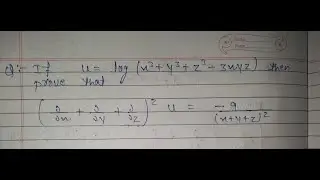 Q:- If u = log (x³ + y³ + z³ - 3xyz) then
prove that
(∂/∂x + ∂/∂y + ∂/∂z)² u = -9/(x+y+z)²